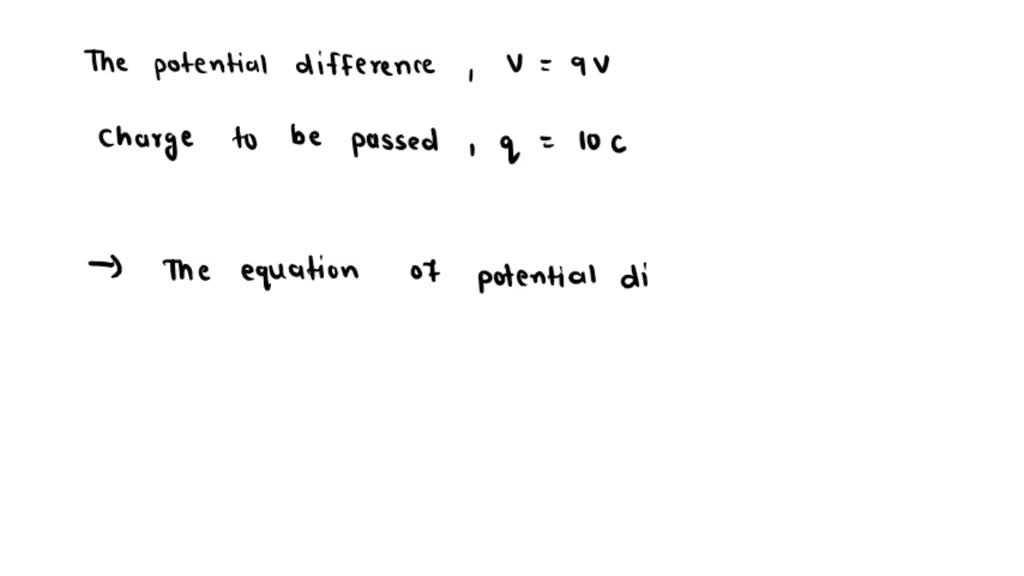 The potential difference , V = 9V
Charge to be passed , q = 10 C
→ The equation of potential di